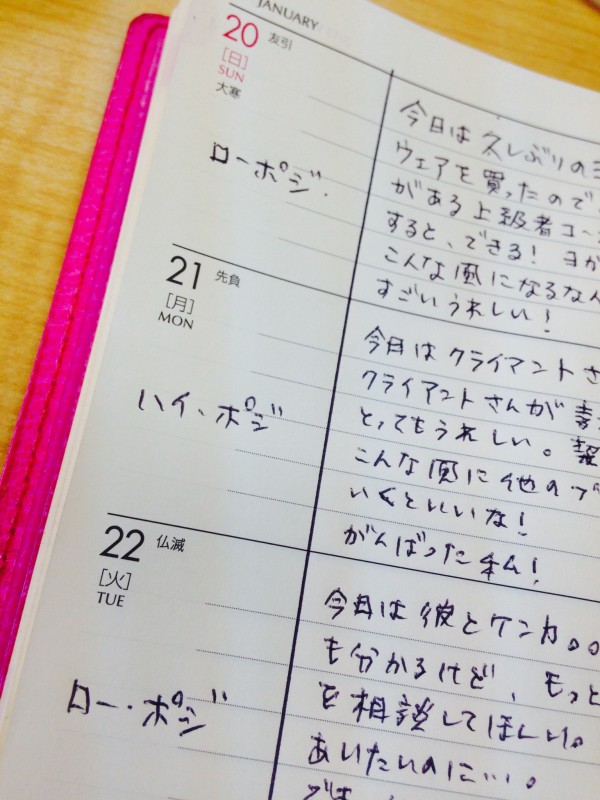 JANUARY
20 友引
[日]
SUN
大寒
ローポジ.
今日は久しぶりのヨ
ウェアを買ったので
がある上級者コー
すると、できる! ヨガ
こんな風になるなん
すごいうれしい!
21 先負
[月]
MON
ハイ・ポジ
今日はクライアントさ
クライアントさんが喜
とってもうれしい。
こんな風に他のプ
いくといいな!
がんばった私!
22 仏滅
[火]
TUE
ロー・ポジ
今日は彼とケンカ。。
も分かるけど、もっと
を相談してほしい。
あいたいのに…。